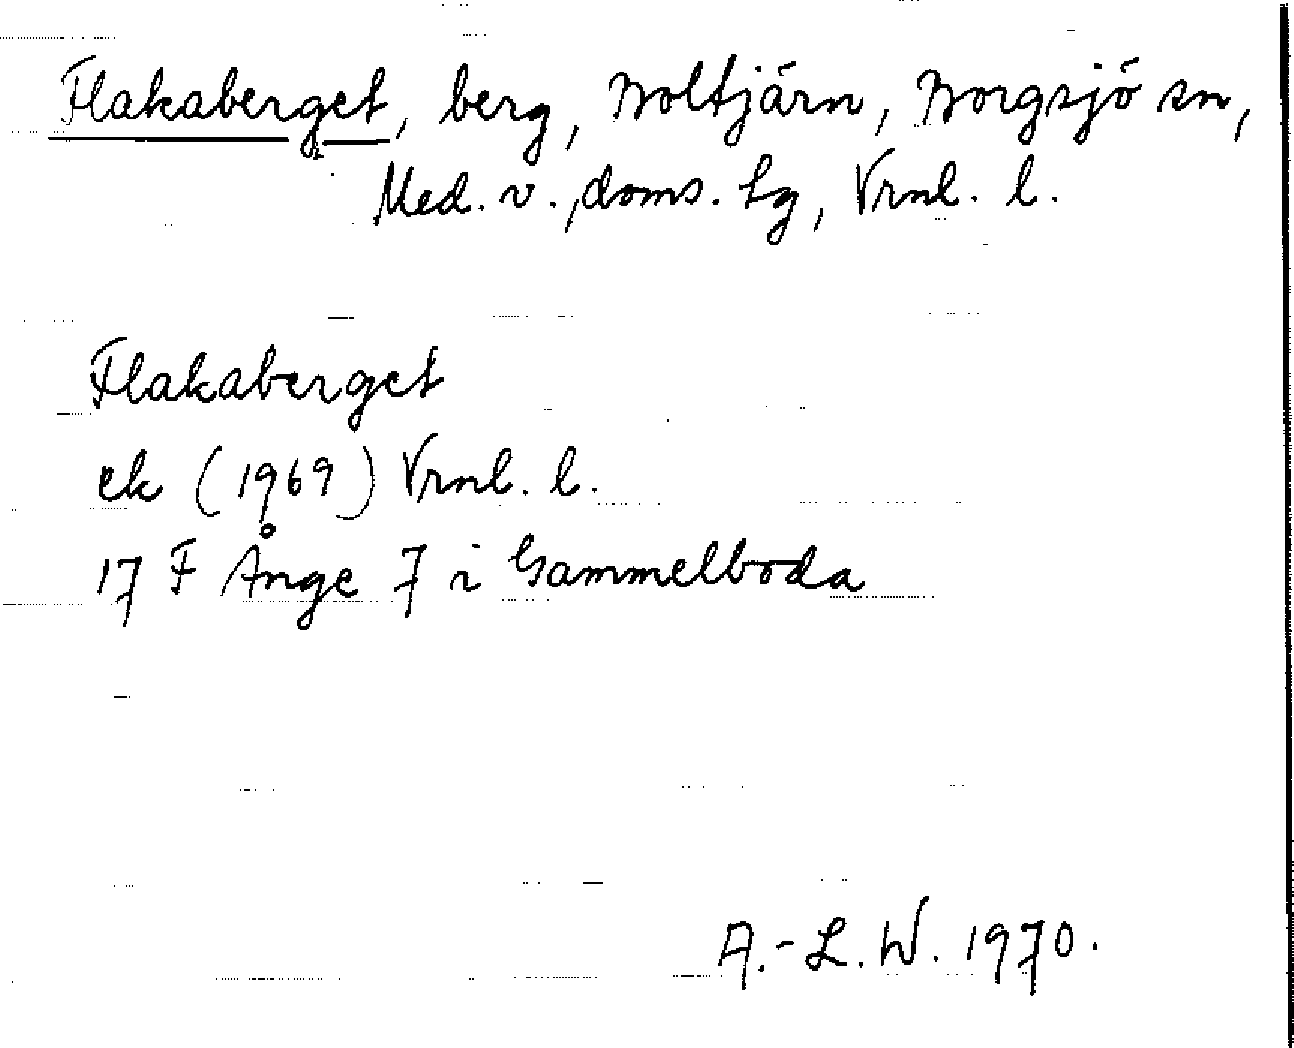 Flakaberget, berg, Boltjärn, Borgsjö sn,
Med. v., doms. Lg, Vrnl. l.
Flakaberget
ek (1969) Vrnl. l.
17 F Ånge 7 i Gammelboda
A.-L. W. 1970.